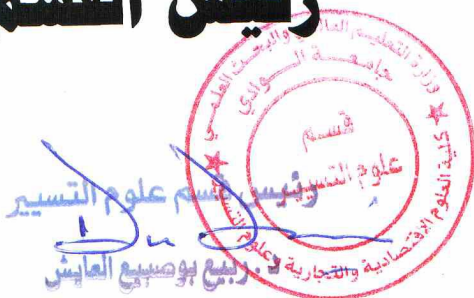 رئيس القسم
وزارة التعليم العالي والبحث العلمي
جامعة الوادي
كلية العلوم الاقتصادية والتجارية وعلوم التسيير
قسم
علوم التسيير
رئيس قسم علوم التسيير
د. ربيع بوصبيع العايش